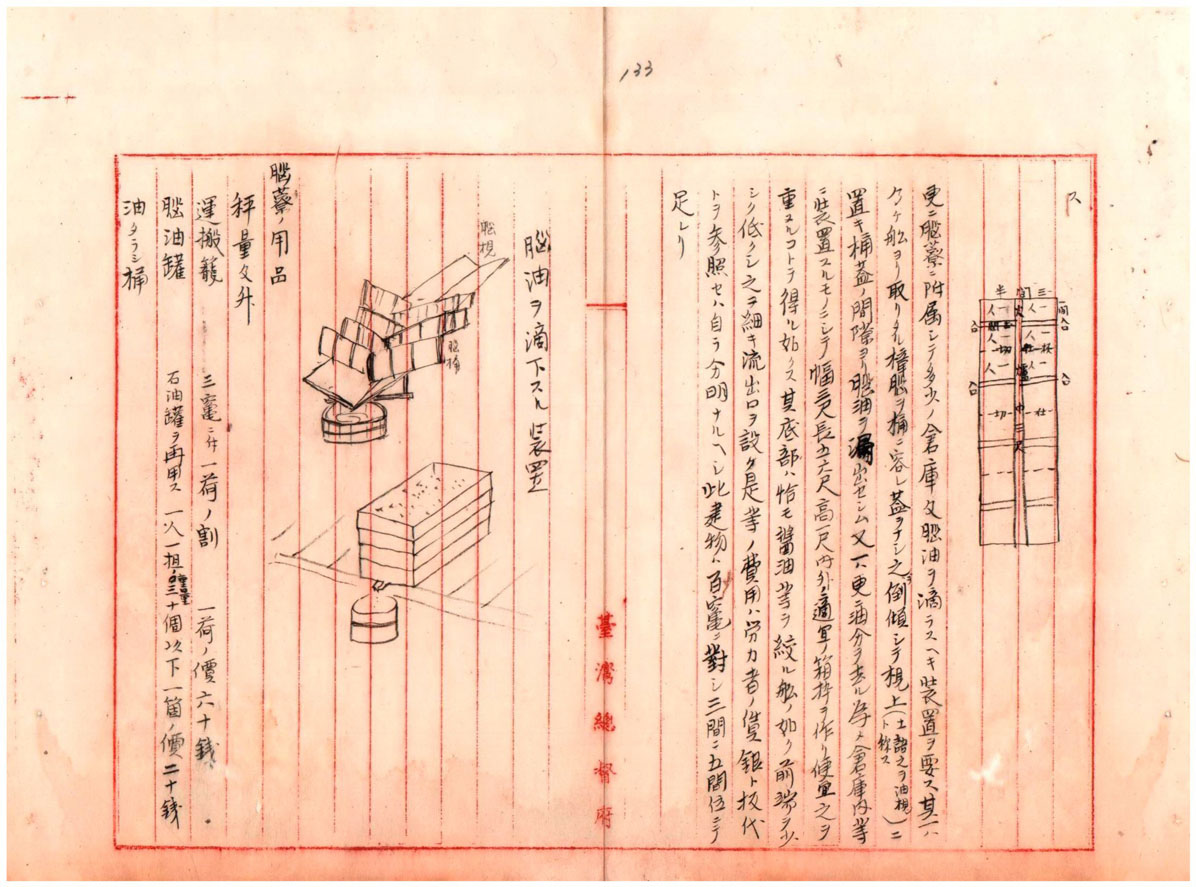 133
ス
三間半
更ニ脳藔ニ附属シテ多少ノ倉庫及脳油ヲ滴ラスヘキ装置ヲ要ス其一ハ
ケケ船ヨリ取リタル樟脳ヲ桶ニ容レ蓋ヲナシ之ヲ倒傾シテ梘上(土語之ヲ油梘ト称ス)ニ
置キ桶蓋ノ間隙ヨリ脳油ヲ漏出セシム又一ハ更ニ油分ヲ去ル為メ倉庫内等
ニ装置スルモノニシテ幅三尺長五六尺高一尺内外ノ適宜ノ箱枠ヲ作リ便宜之ヲ
重ヌルコトヲ得ル如クス其底部ハ恰モ醤油等ヲ絞ル船ノ如ク前端ヲ少
シク低クシ之ヲ細キ流出口ヲ設ク是等ノ費用ハ労力者ノ賃銀ト板代
トヲ参照セハ自ラ分明ナルヘシ此建物ハ百竃ニ對シ三間ニ五間位ニテ
足レリ
臺灣總督府
脳油ヲ滴下スル装置
脳梘
脳桶
脳藔ノ用品
秤量又外
運搬籠 三竃ニ付一荷ノ割 一荷ノ價六十錢
脳油罐 石油罐ヲ再用ス 一人一担ノ重量三十個以下一箇ノ價二十錢
油タラシ桶